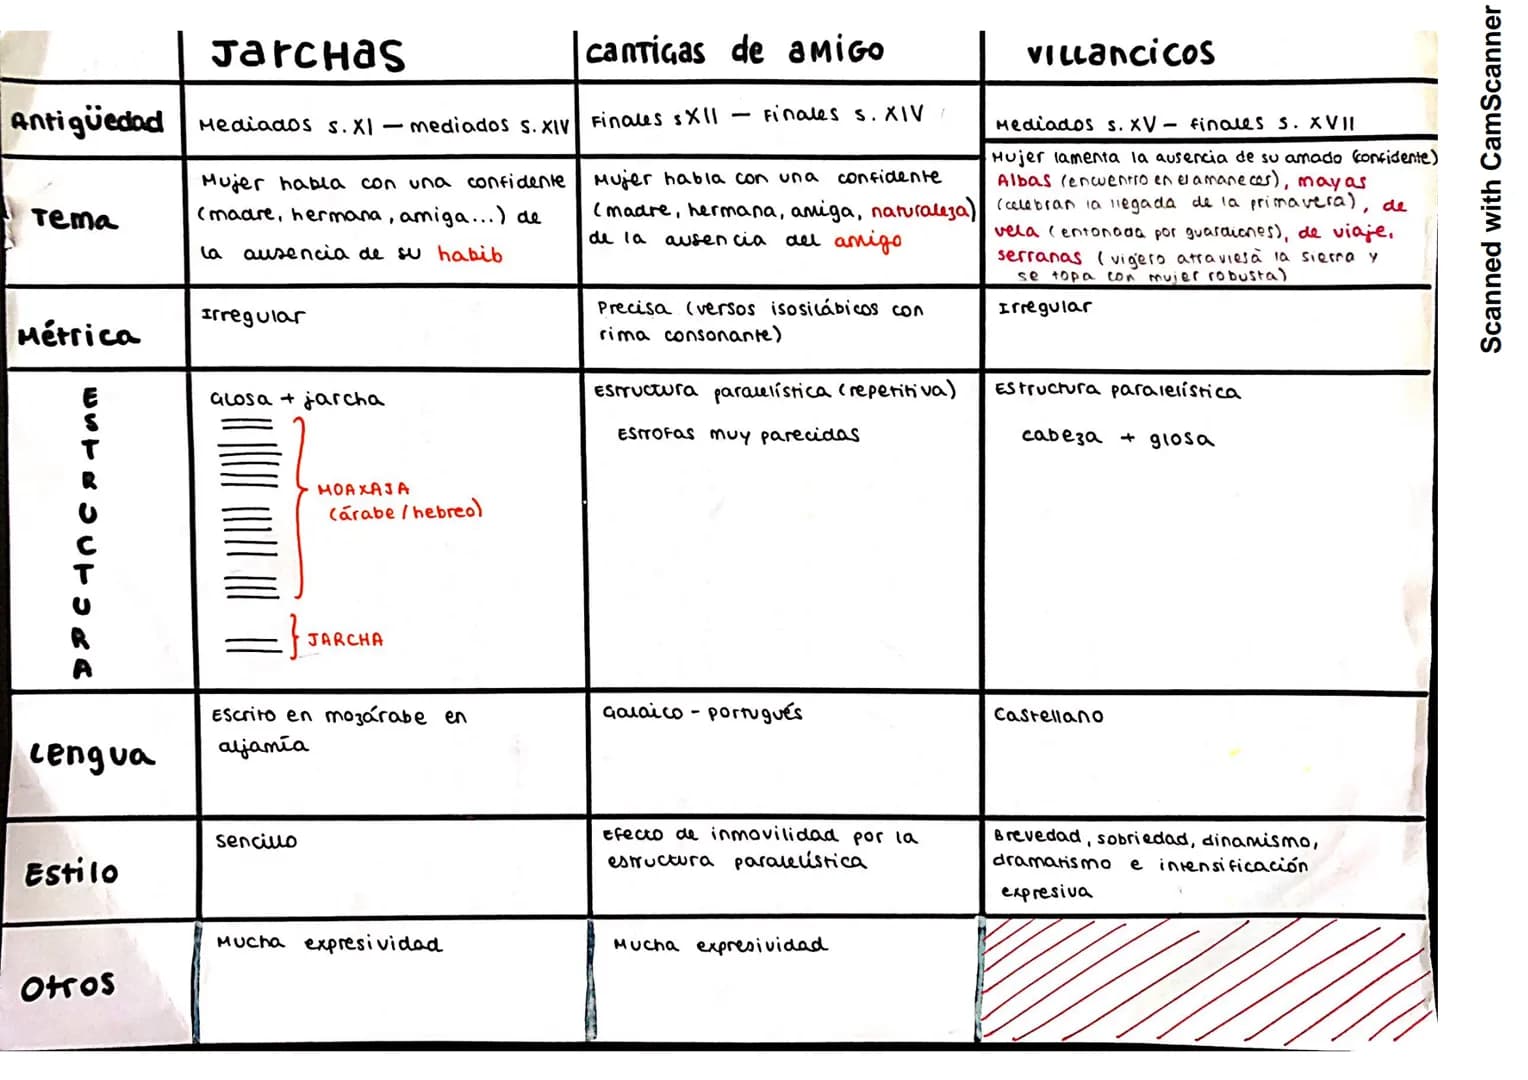 Jarchas
Cantigas de amigo
Villancicos
Antigüedad
Mediados s. XI — mediados s. XIV
Finales s XII — Finales s. XIV
Mediados s. XV — finales s. XVII
Tema
Mujer habla con una confidente
(madre, hermana, amiga...) de
la ausencia de su habib
Mujer habla con una confidente
(madre, hermana, amiga, naturaleza)
de la ausencia del amigo
Mujer lamenta la ausencia de su amado (confidente)
Albas (encuentro en el amanecer), mayas
(celebran la llegada de la primavera), de
vela (entonada por guardianes), de viaje,
serranas (vigero atraviesa la sierra y
se topa con mujer robusta)
Métrica
Irregular
Precisa (versos isosilábicos con
rima consonante)
Irregular
ESTRUCTURA
Glosa + jarcha
MOAXAJA
(árabe / hebreo)
JARCHA
Estructura paralelística (repetitiva)
Estrofas muy parecidas
Estructura paralelística
cabeza + glosa
Lengua
Escrito en mozárabe en
aljamía
Galaico - portugués
Castellano
Estilo
Sencillo
Efecto de inmovilidad por la
estructura paralelística
Brevedad, sobriedad, dinamismo,
dramatismo e intensificación
expresiva
Otros
Mucha expresividad
Mucha expresividad
Scanned with CamScanner